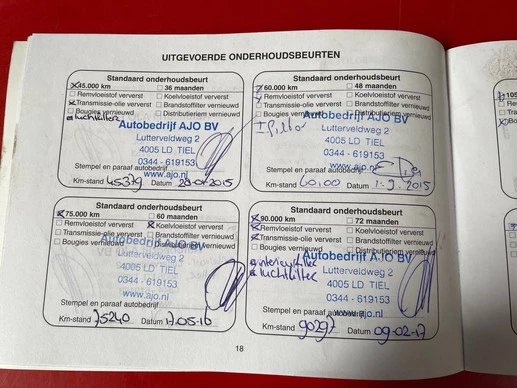 UITGEVOERDE ONDERHOUDSBEURTEN
Standaard onderhoudsbeurt
45.000 km 36 maanden
Remvloeistof ververst Koelvloeistof ververst
Transmissie-olie ververst Brandstoffilter vernieuwd
Bougies vernieuwd Distributieriem vernieuwd
luchtfilter
Autobedrijf AJO BV
Lutterveldweg 2
4005 LD TIEL
0344 - 619153
www.ajo.nl
Stempel en paraaf autobedrijf
Km-stand 45379 Datum 20-01-2015
Standaard onderhoudsbeurt
60.000 km 48 maanden
Remvloeistof ververst Koelvloeistof ververst
Transmissie-olie ververst Brandstoffilter vernieuwd
Bougies vernieuwd Distributieriem vernieuwd
Autobedrijf AJO BV
Lutterveldweg 2
4005 LD TIEL
0344 - 619153
www.ajo.nl
Stempel en paraaf autobedrijf
Km-stand Datum 1-9-2015
Standaard onderhoudsbeurt
75.000 km 60 maanden
Remvloeistof ververst Koelvloeistof ververst
Transmissie-olie ververst Brandstoffilter vernieuwd
Bougies vernieuwd Distributieriem vernieuwd
Autobedrijf AJO BV
Lutterveldweg 2
4005 LD TIEL
0344 - 619153
www.ajo.nl
Stempel en paraaf autobedrijf
Km-stand 75240 Datum 17-05-16
Standaard onderhoudsbeurt
90.000 km 72 maanden
Remvloeistof ververst Koelvloeistof ververst
Transmissie-olie ververst Brandstoffilter vernieuwd
Bougies vernieuwd Distributieriem vernieuwd
interieurfilter
luchtfilter
Autobedrijf AJO BV
Lutterveldweg 2
4005 LD TIEL
0344 - 619153
www.ajo.nl
Stempel en paraaf autobedrijf
Km-stand 90297 Datum 09-02-17
18